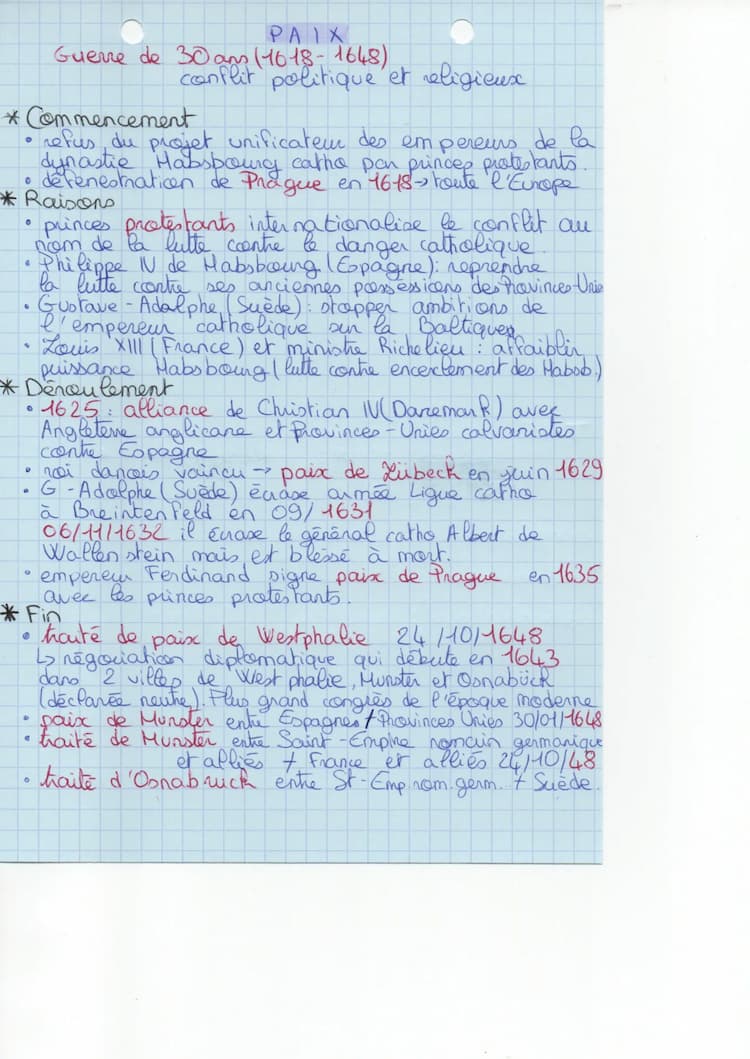 PAIX
Guerre de 30 ans (1618-1648)
conflit politique et religieux
* Commencement
• refus du projet unificateur des empereurs de la
dynastie Habsbourg catho par princes protestants.
• défenestration de Prague en 1618 → toute l'Europe
* Raisons
• princes protestants internationalise le conflit au
nom de la lutte contre le danger catholique.
• Philippe IV de Habsbourg (Espagne): reprendre
la lutte contre ses anciennes possessions des Provinces-Unie
• Gustave-Adolphe (Suède): stopper ambitions de
l'empereur catholique sur la Baltique
• Louis XIII (France) et ministre Richelieu : affaiblir
puissance Habsbourg (lutte contre encerclement des Habsb.)
* Déroulement
• 1625 : alliance de Christian IV (Danemark) avec
Angleterre anglicane et Provinces-Unies calvinistes
contre Espagne
• roi danois vaincu → paix de Lübeck en juin 1629
• G-Adolphe (Suède) écrase armée Ligue catho
à Breintenfeld en 09/1631
06/11/1632 il écrase le général catho Albert de
Wallenstein mais est bléssé à mort.
• empereur Ferdinand signe paix de Prague en 1635
avec les princes protestants.
* Fin
• traité de paix de Westphalie 24/10/1648
↳ négociation diplomatique qui débute en 1643
dans 2 villes de Westphalie, Munster et Osnabück
(déclarée neutre). Plus grand congrès de l'époque moderne
• paix de Munster entre Espagnes / Provinces Unies 30/01/1648
• traité de Munster entre Saint-Empire romain germanique
et alliés + France et alliés 24/10/48
• traité d'Osnabruck entre St-Emp.rom.germ. + Suède.